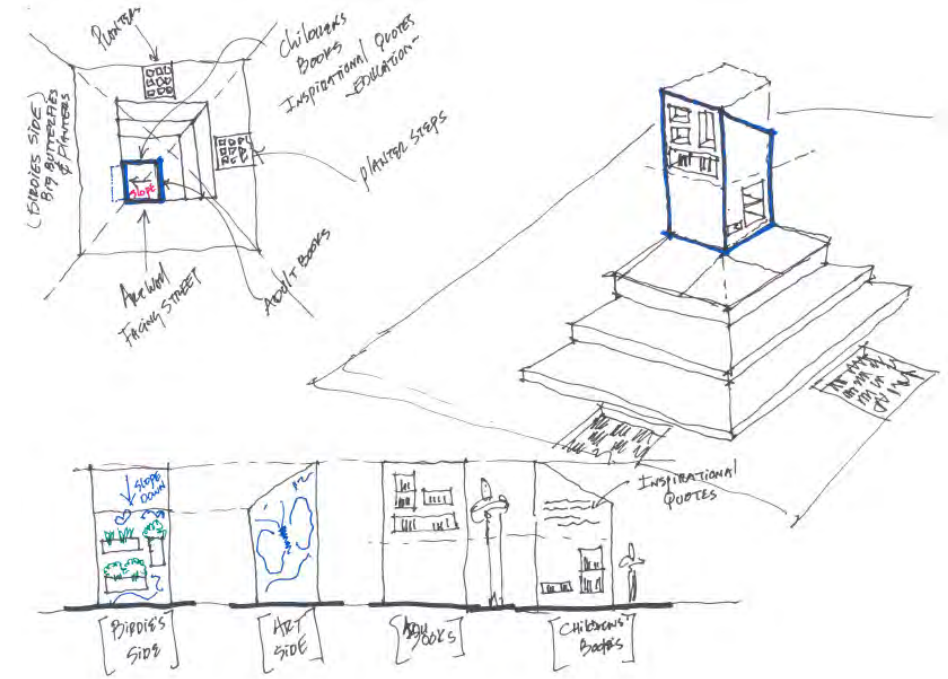 PLANTER
CHILDRENS
BOOKS
INSPIRATIONAL QUOTES
-EDUCATION-
(BIRDIES SIDE)
BIG BUTTERFIES
& PLANTERS
PLANTER STEPS
SLOPE
ART WALL
FACING STREET
ADULT BOOKS
SLOPE
DOWN
INSPIRATIONAL
QUOTES
BIRDIE'S
SIDE
ART
SIDE
BOOKS
CHILDRENS'
BOOKS